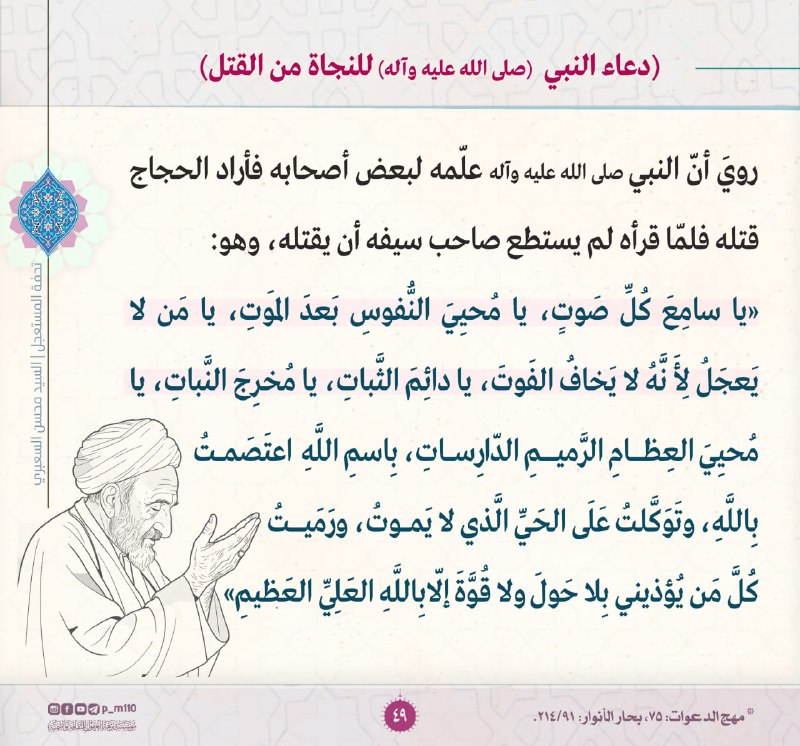 (دعاء النبي (صلى الله عليه وآله) للنجاة من القتل)
رويَ أنّ النبي صلى الله عليه وآله علّمه لبعض أصحابه فأراد الحجاج
قتله فلمّا قرأه لم يستطع صاحب سيفه أن يقتله، وهو:
«يا سامِعَ كُلِّ صَوتٍ، يا مُحيِيَ النُّفوسِ بَعدَ المَوتِ، يا مَن لا
يَعجَلُ لِأَنَّهُ لا يَخافُ الفَوتَ، يا دائِمَ الثَّباتِ، يا مُخرِجَ النَّباتِ، يا
مُحيِيَ العِظـامِ الرَّميـمِ الدّارِسـاتِ، بِاسمِ اللَّهِ اعتَصَمـتُ
بِاللَّهِ، وتَوَكَّلتُ عَلَى الحَيِّ الَّذي لا يَمـوتُ، ورَمَيـتُ
كُلَّ مَن يُؤذيني بِلا حَولَ ولا قُوَّةَ إلّابِاللَّهِ العَلِيِّ العَظيمِ»
تحفة المستعجل | السيد محسن السعبري
*مهج الدعوات: ٧٥، بحار الأنوار: ٢١٤/٩١.
٤٩
p_m110